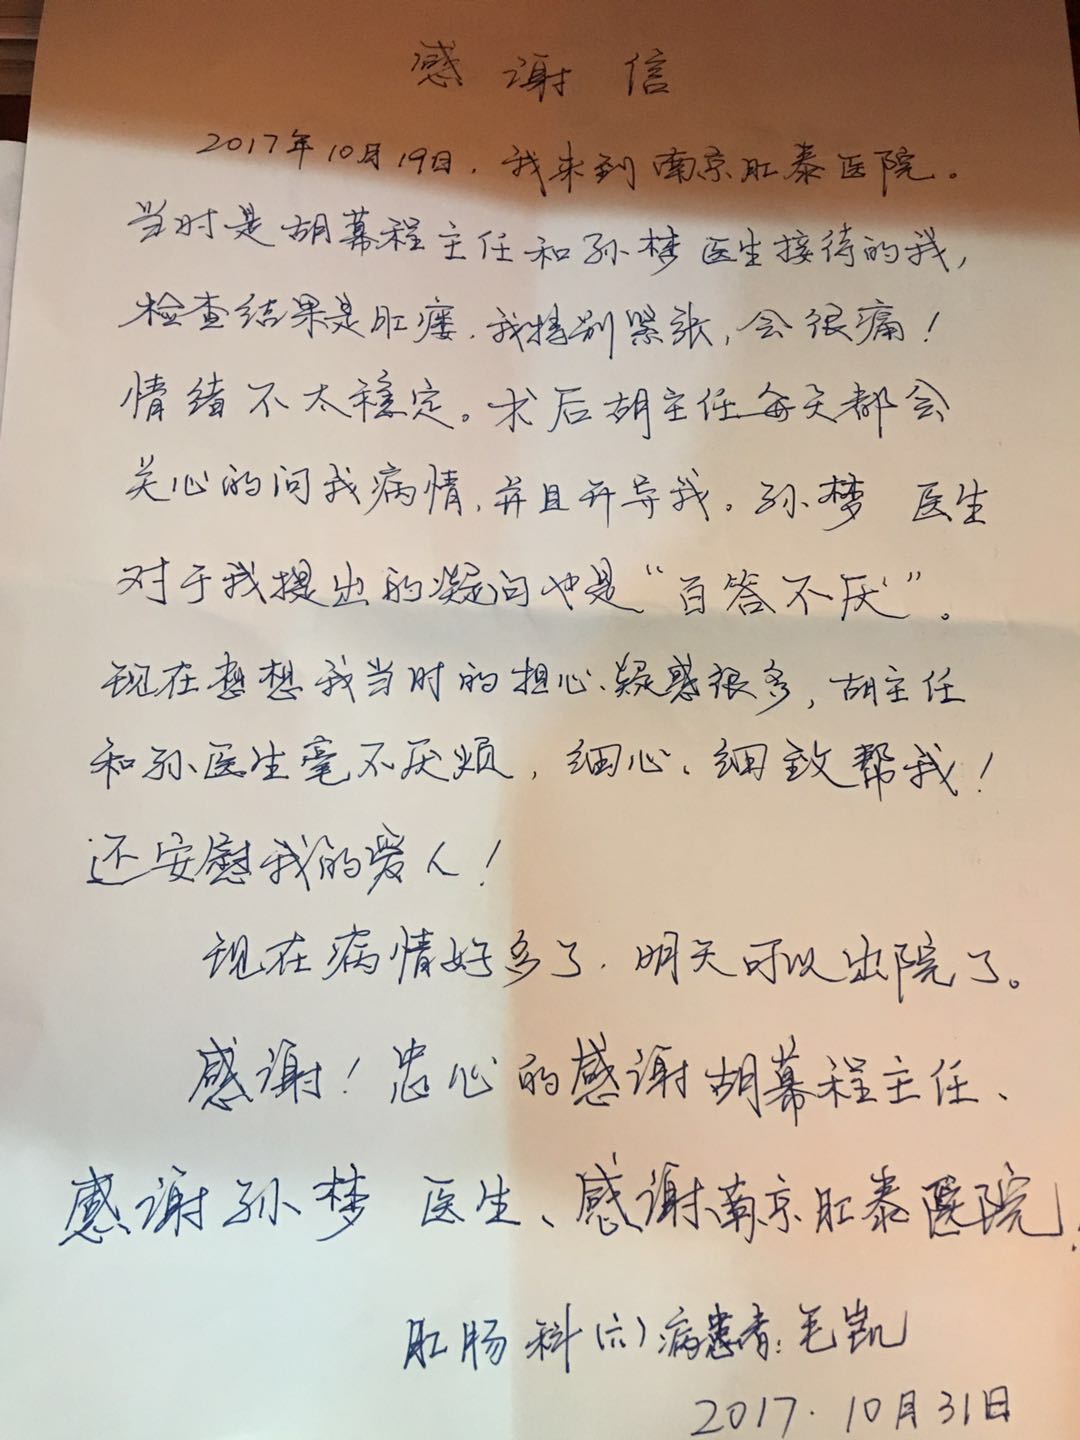 感谢信
2017年10月19日，我来到南京肛泰医院。
当时是胡幕程主任和孙梦医生接待的我，
检查结果是肛瘘，我特别紧张，会很痛！
情绪不太稳定。术后胡主任每天都会
关心的问我病情，并且开导我。孙梦 医生
对于我提出的凝问也是“百答不厌”。
现在想想我当时的担心、疑惑很多，胡主任
和孙医生毫不厌烦，细心、细致帮我！
还安慰我的爱人！
现在病情好多了，明天可以出院了。
感谢！忠心的感谢胡幕程主任、
感谢孙梦 医生、感谢南京肛泰医院！
肛肠科（六）病患者：毛凯
2017.10月31日